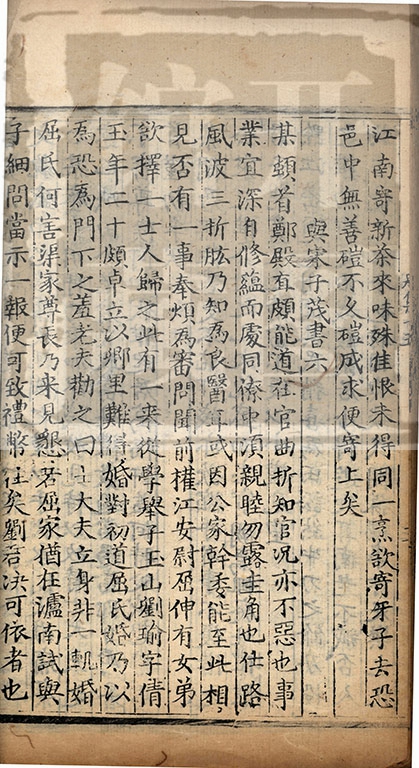 江南寄新茶來味殊佳恨未得同一烹欲寄牙子去恐
邑中無善磑不久磑成求便寄上矣
與宋子茂書六
某頓首鄭殿直頗能道在官曲折知官况亦不惡也事
業宜深自修蘊而處同僚中須親睦勿露圭角也仕路
風波三折肱乃知為良醫耳或因公家幹委能至此相
見否有一事奉煩為審問聞前權江安尉屈伸有女弟
欲擇一士人歸之此有一來從學舉子玉山劉瑜字倩
玉年二十頗卓立以鄉里難得婚對初道屈氏婚乃以
為恐為門下之羞老夫勸之曰士大夫立身非一軌婚
屈氏何害渠家尊長乃來見懇若屈家猶在瀘南試與
子細問當示一報便可致禮幣往矣劉君决可依者也